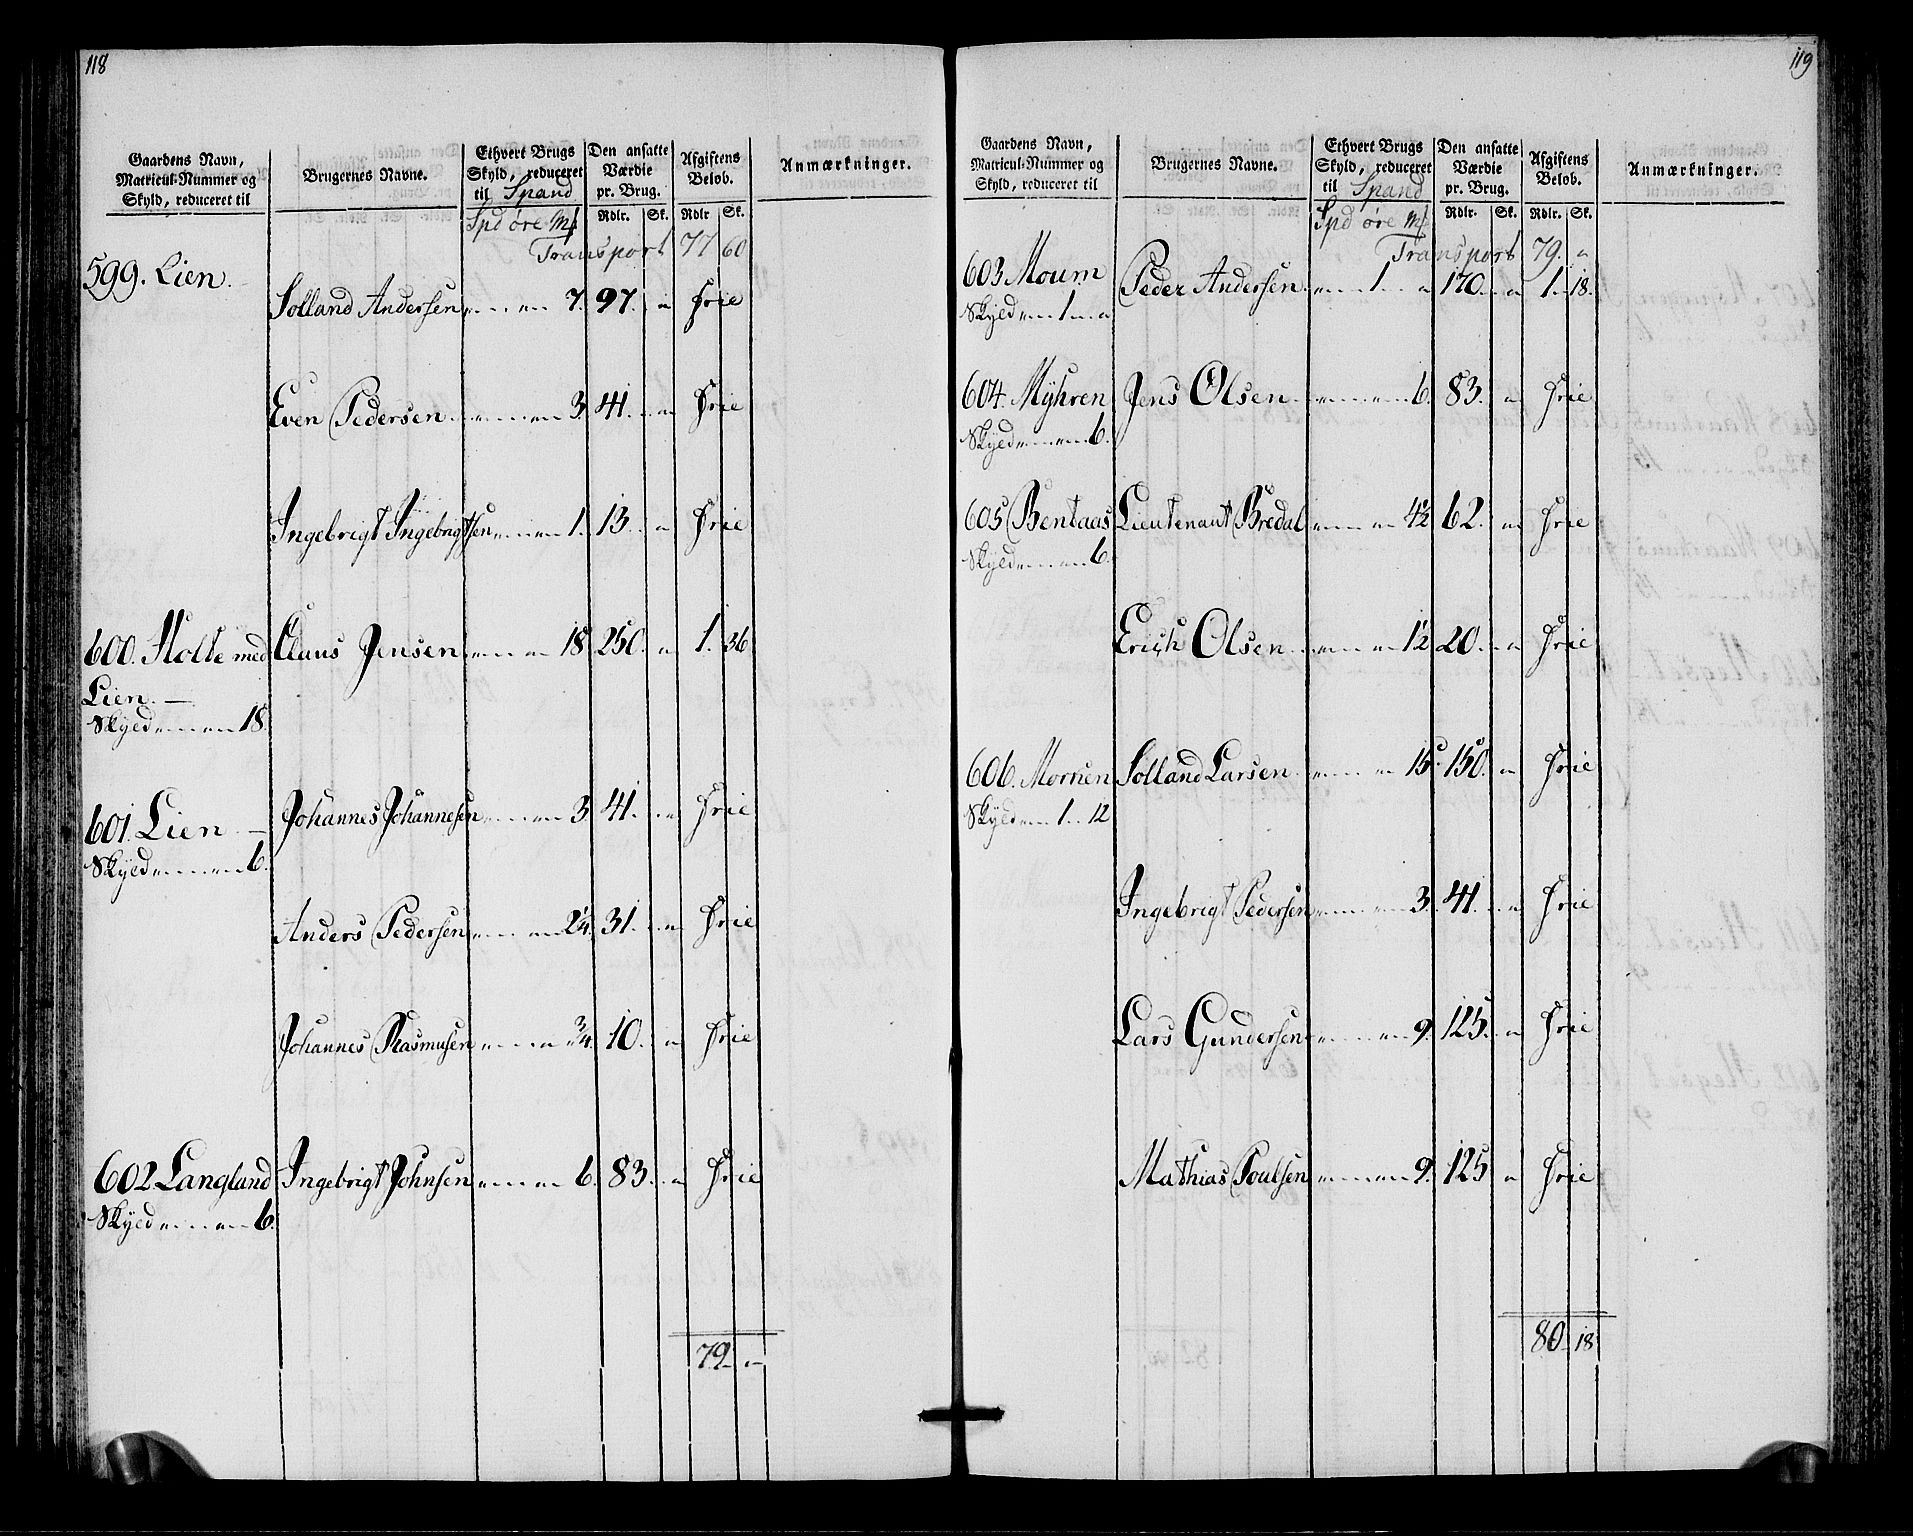 118
Gaardens Navn, Matricul-Nummer og Skyld, reduceret til | Brugernes Navne. | Ethvert Brugs Skyld, reduceret til Spand | Den ansatte Værdie pr. Brug. | Afgiftens Beløb. | Anmærkninger.
Spd øre mk | Rdlr. | Sk. | Rdlr | Sk.
Transport 77 60
599. Lien. Solland Andersen 7. 97. " Frie
Even Pedersen 3. 41. " Frie
Ingebrigt Ingebrigtsen 1. 13. " Frie
600. Holte med Claus Jensen 18. 250. " 1. 36
Lien. —
Skyld " " 18.
601. Lien — Johannes Johannesen 3. 41. " Frie
Skyld " " 6.
Anders Pedersen 2 1/4. 31. " Frie
Johannes Rasmusen " 3/4. 10. " Frie
602 Langland Ingebrigt Johnsen 6. 83. " Frie
Skyld " " 6.
79. "
119
Gaardens Navn, Matricul-Nummer og Skyld, reduceret til | Brugernes Navne. | Ethvert Brugs Skyld, reduceret til Spand | Den ansatte Værdie pr. Brug. | Afgiftens Beløb. | Anmærkninger.
Spd øre mk | Rdlr. | Sk. | Rdlr. | Sk.
Transport 79. "
603. Moum Peder Andersen " 1 " 170. " 1. 18.
Skyld " 1 "
604. Myhren Jens Olsen 6. 83. " Frie
Skyld " " 6.
605 Bentaas Lieutenant Bredal 4 1/2 62. " Frie
Skyld " " 6.
Erich Olsen 1 1/2 20. " Frie
606. Morsen Solland Larsen 15. 150. " Frie
Skyld " 1 " 12
Ingebrigt Pedersen 3. 41. " Frie
Lars Gundersen 9. 125. " Frie
Mathias Poulsen 9. 125 " Frie
80. 18